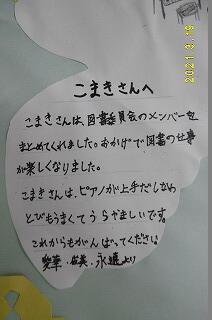 こまきさんへ
こまきさんは、図書委員会のメンバーを
まとめてくれました。おかげで図書の仕事
が楽しくなりました。
こまきさんは、ピアノが上手だしなわ
とびもうまくてうらやましいです。
これからもがんばってください
より
2021 3 19